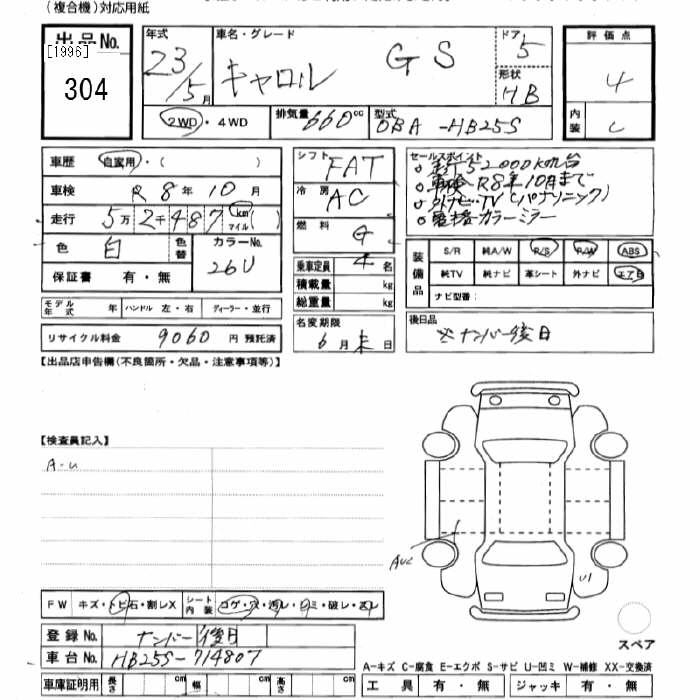 (複合機)対応用紙
出品No.
[1996]
304
年式
23/5月
車名・グレード
キャロル GS
ドア
5
形状
HB
評価点
4
内装
C
2WD・4WD
排気量 660cc
型式 DBA-HB25S
車歴 自家用・( )
車検 R8年10月
走行 5万2千487km マイル( )
色 白
色替
カラーNo.
26U
保証書 有・無
シフト FAT
冷房 AC
燃料 G
乗車定員 4名
積載量 kg
総重量 kg
セールスポイント
52000km台
車検R8年10月まで
外ナビ・TV(パナソニック)
電格カラーミラー
装備品
S/R 純A/W P/S P/W ABS
純TV 純ナビ 革シート 外ナビ エアB
ナビ型番:
モデル年式 年 ハンドル 左・右 ディーラー・並行
リサイクル料金 9060円 預託済
名変期限
6月末日
後日品
※ナンバー後日
【出品店申告欄(不良箇所・欠品・注意事項等)】
【検査員記入】
A-U
AUC
U1
FW キズ・トビ石・割レX
シート内装 コゲ・穴・汚レ・シミ・破レ・スレ
スペア
登録No. ナンバー後日
車台No. HB25S-714807
A-キズ C-腐食 E-エクボ S-サビ U-凹ミ W-補修 XX-交換済
車庫証明用 長さ cm 幅 cm 高さ cm
工具 有・無 ジャッキ 有・無